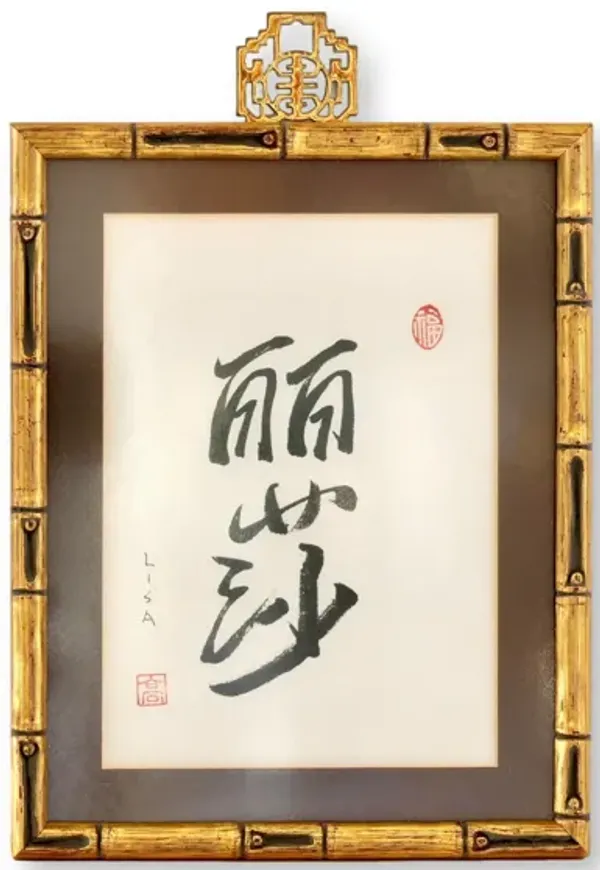 福
丽
莎
LISA
高